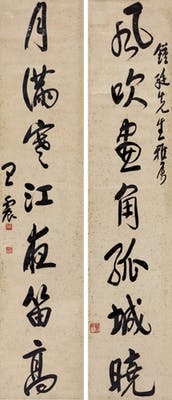 風吹畫角孤城曉
鏡廷先生雅屬
月滿寒江夜笛高
王震